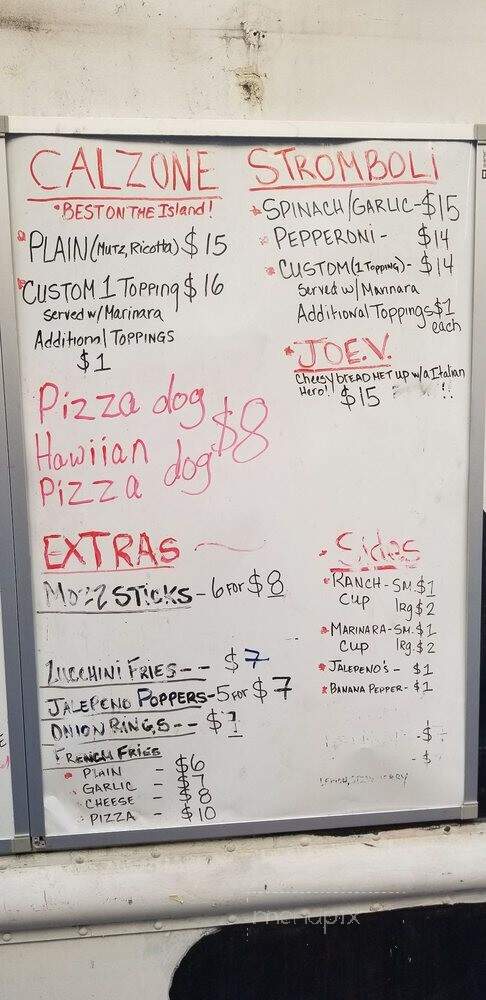 CALZONE
*BEST ON THE Island!
*PLAIN (MUTZ, Ricotta) $15
*CUSTOM 1 TOPPING $16
Served w/ Marinara
Additional TOPPINGS
$1
STROMBOLI
*SPINACH/GARLIC-$15
*PEPPERONI- $14
*CUSTOM (1 TOPPING)- $14
Served w/ Marinara
Additional Toppings $1
each
*JOE.V.
Cheesy bread MET UP w/a Italian
Hero! $15 !!
Pizza dog
Hawiian $8
Pizza dog
EXTRAS
MOZZ STICKS - 6 FOR $8
ZUCCHINI FRIES-- $7
JALEPENO POPPERS-5 FOR $7
ONION RINGS--
FRENCH FRIES
* PLAIN - $6
* GARLIC - $7
* CHEESE - $8
* PIZZA - $10
* Sides
*RANCH - SM. $1
CUP lrg $2
*MARINARA-SM. $1
CUP lrg. $2
*JALEPENO'S - $1
*BANANA PEPPER- $1
-$
-$
menupix